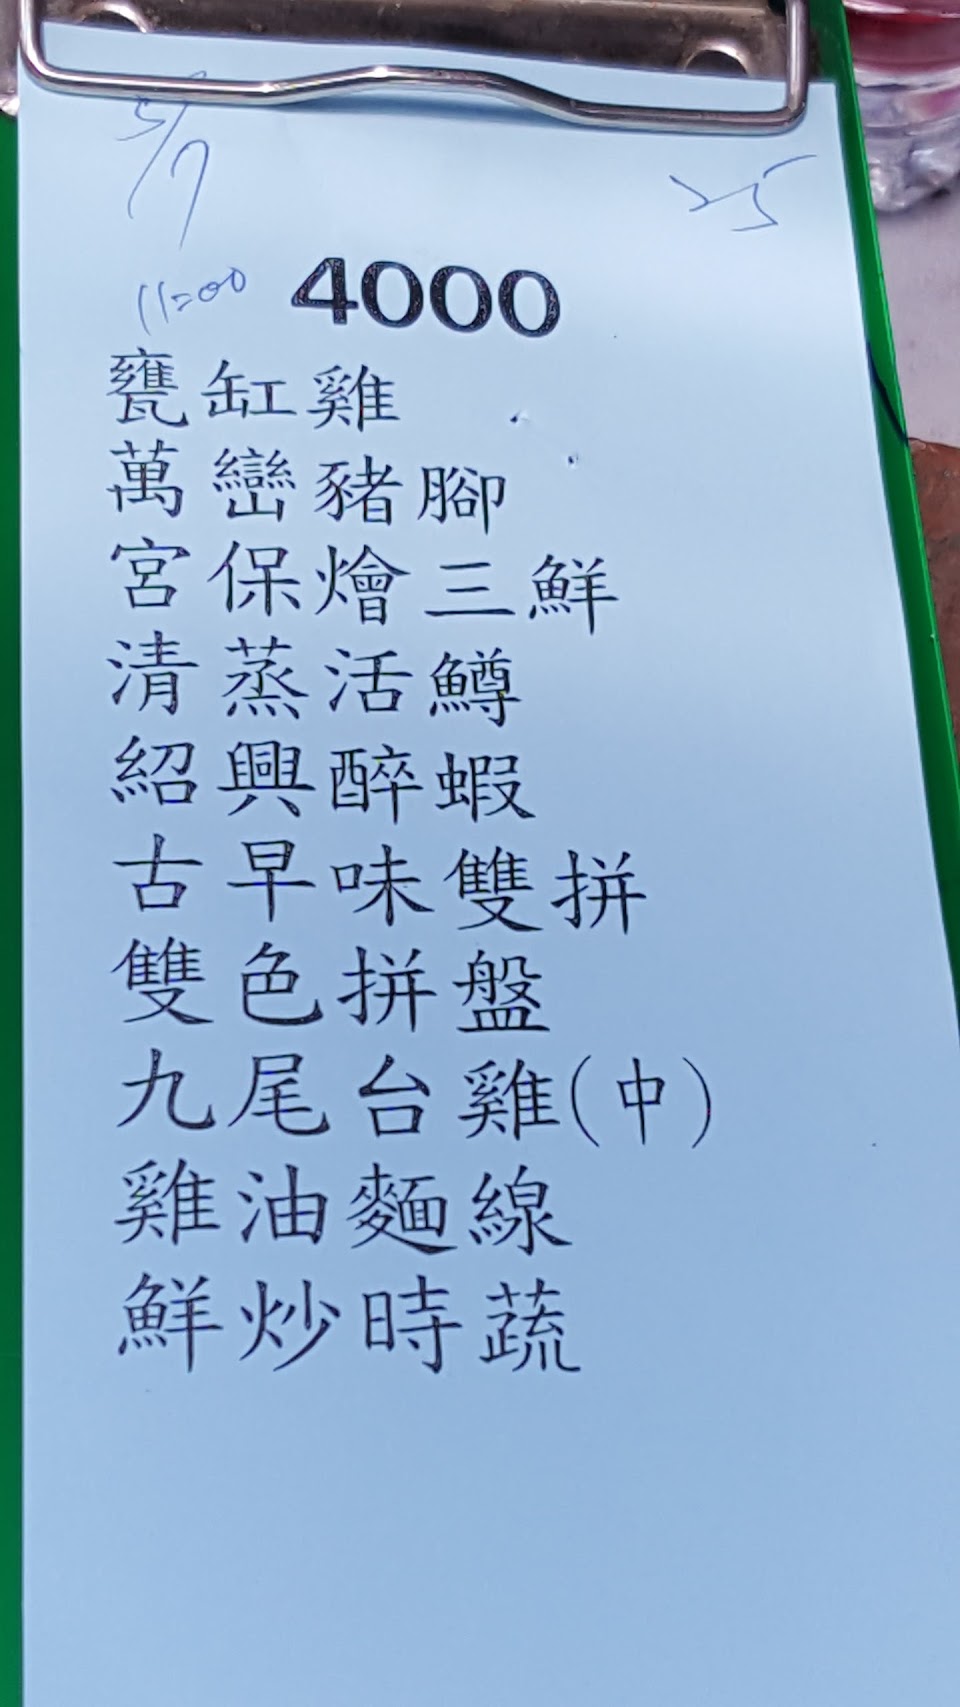 5/7
25
11:00
4000
甕缸雞
萬巒豬腳
宮保燴三鮮
清蒸活鱒
紹興醉蝦
古早味雙拼
雙色拼盤
九尾台雞(中)
雞油麵線
鮮炒時蔬